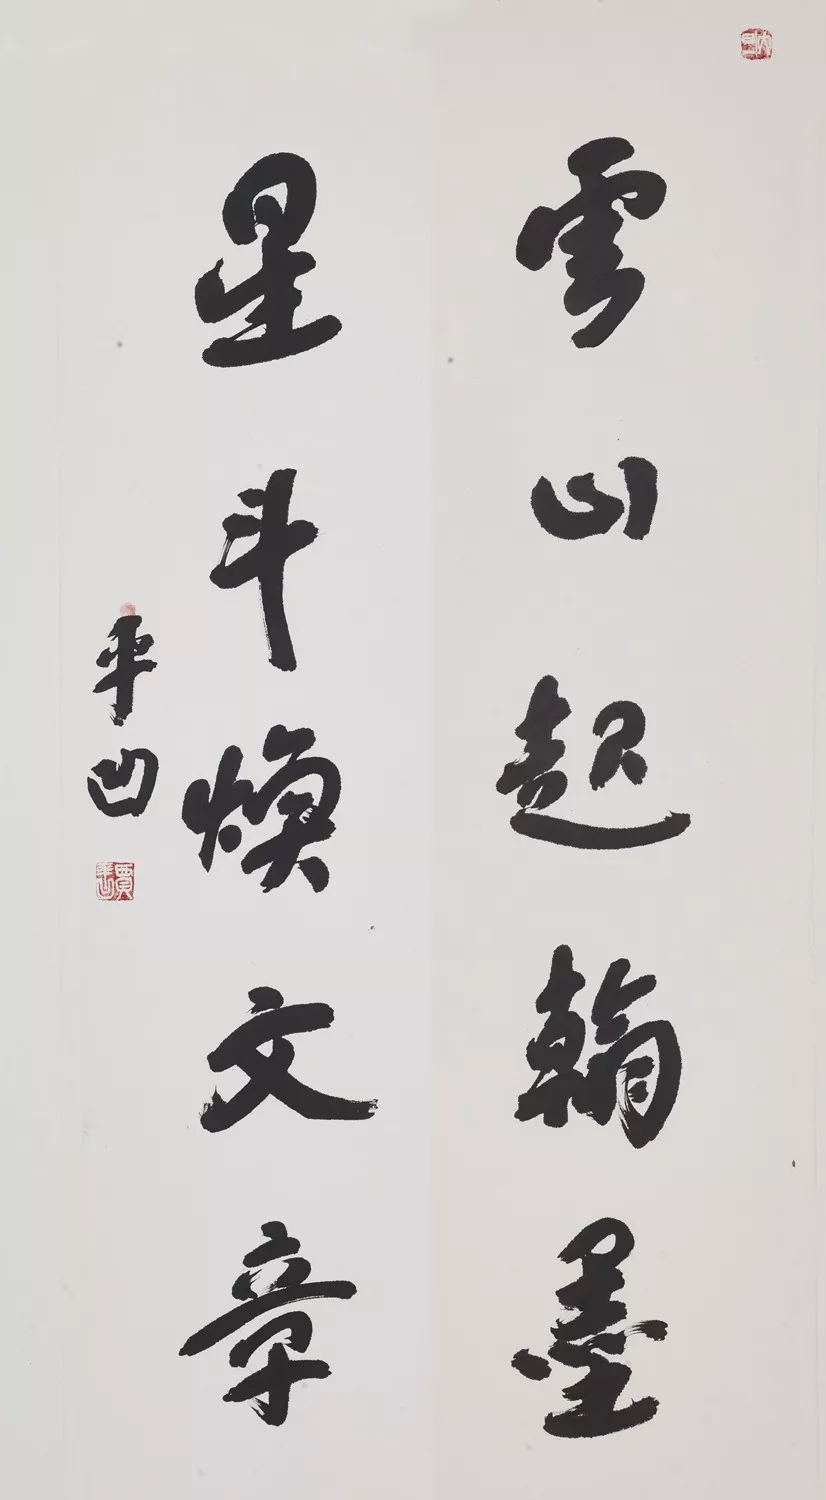 雲山起翰墨
星斗煥文章
平凹
賈平凹